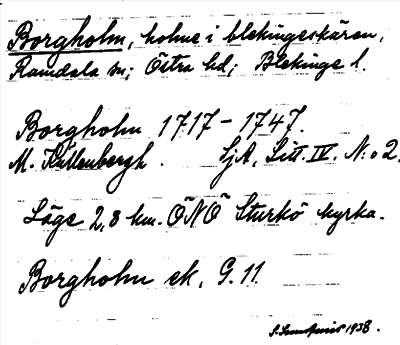 Borgholm, holme i blekingeskären,
Ramdala sn; Östra hd; Blekinge l.
Borgholm 1717–1747.
M. Källenbergh. SjA, Litt. IV. N:o 2.
Läge 2,8 km. ÖNÖ Sturkö kyrka.
Borgholm ek. G. 11.
1938.